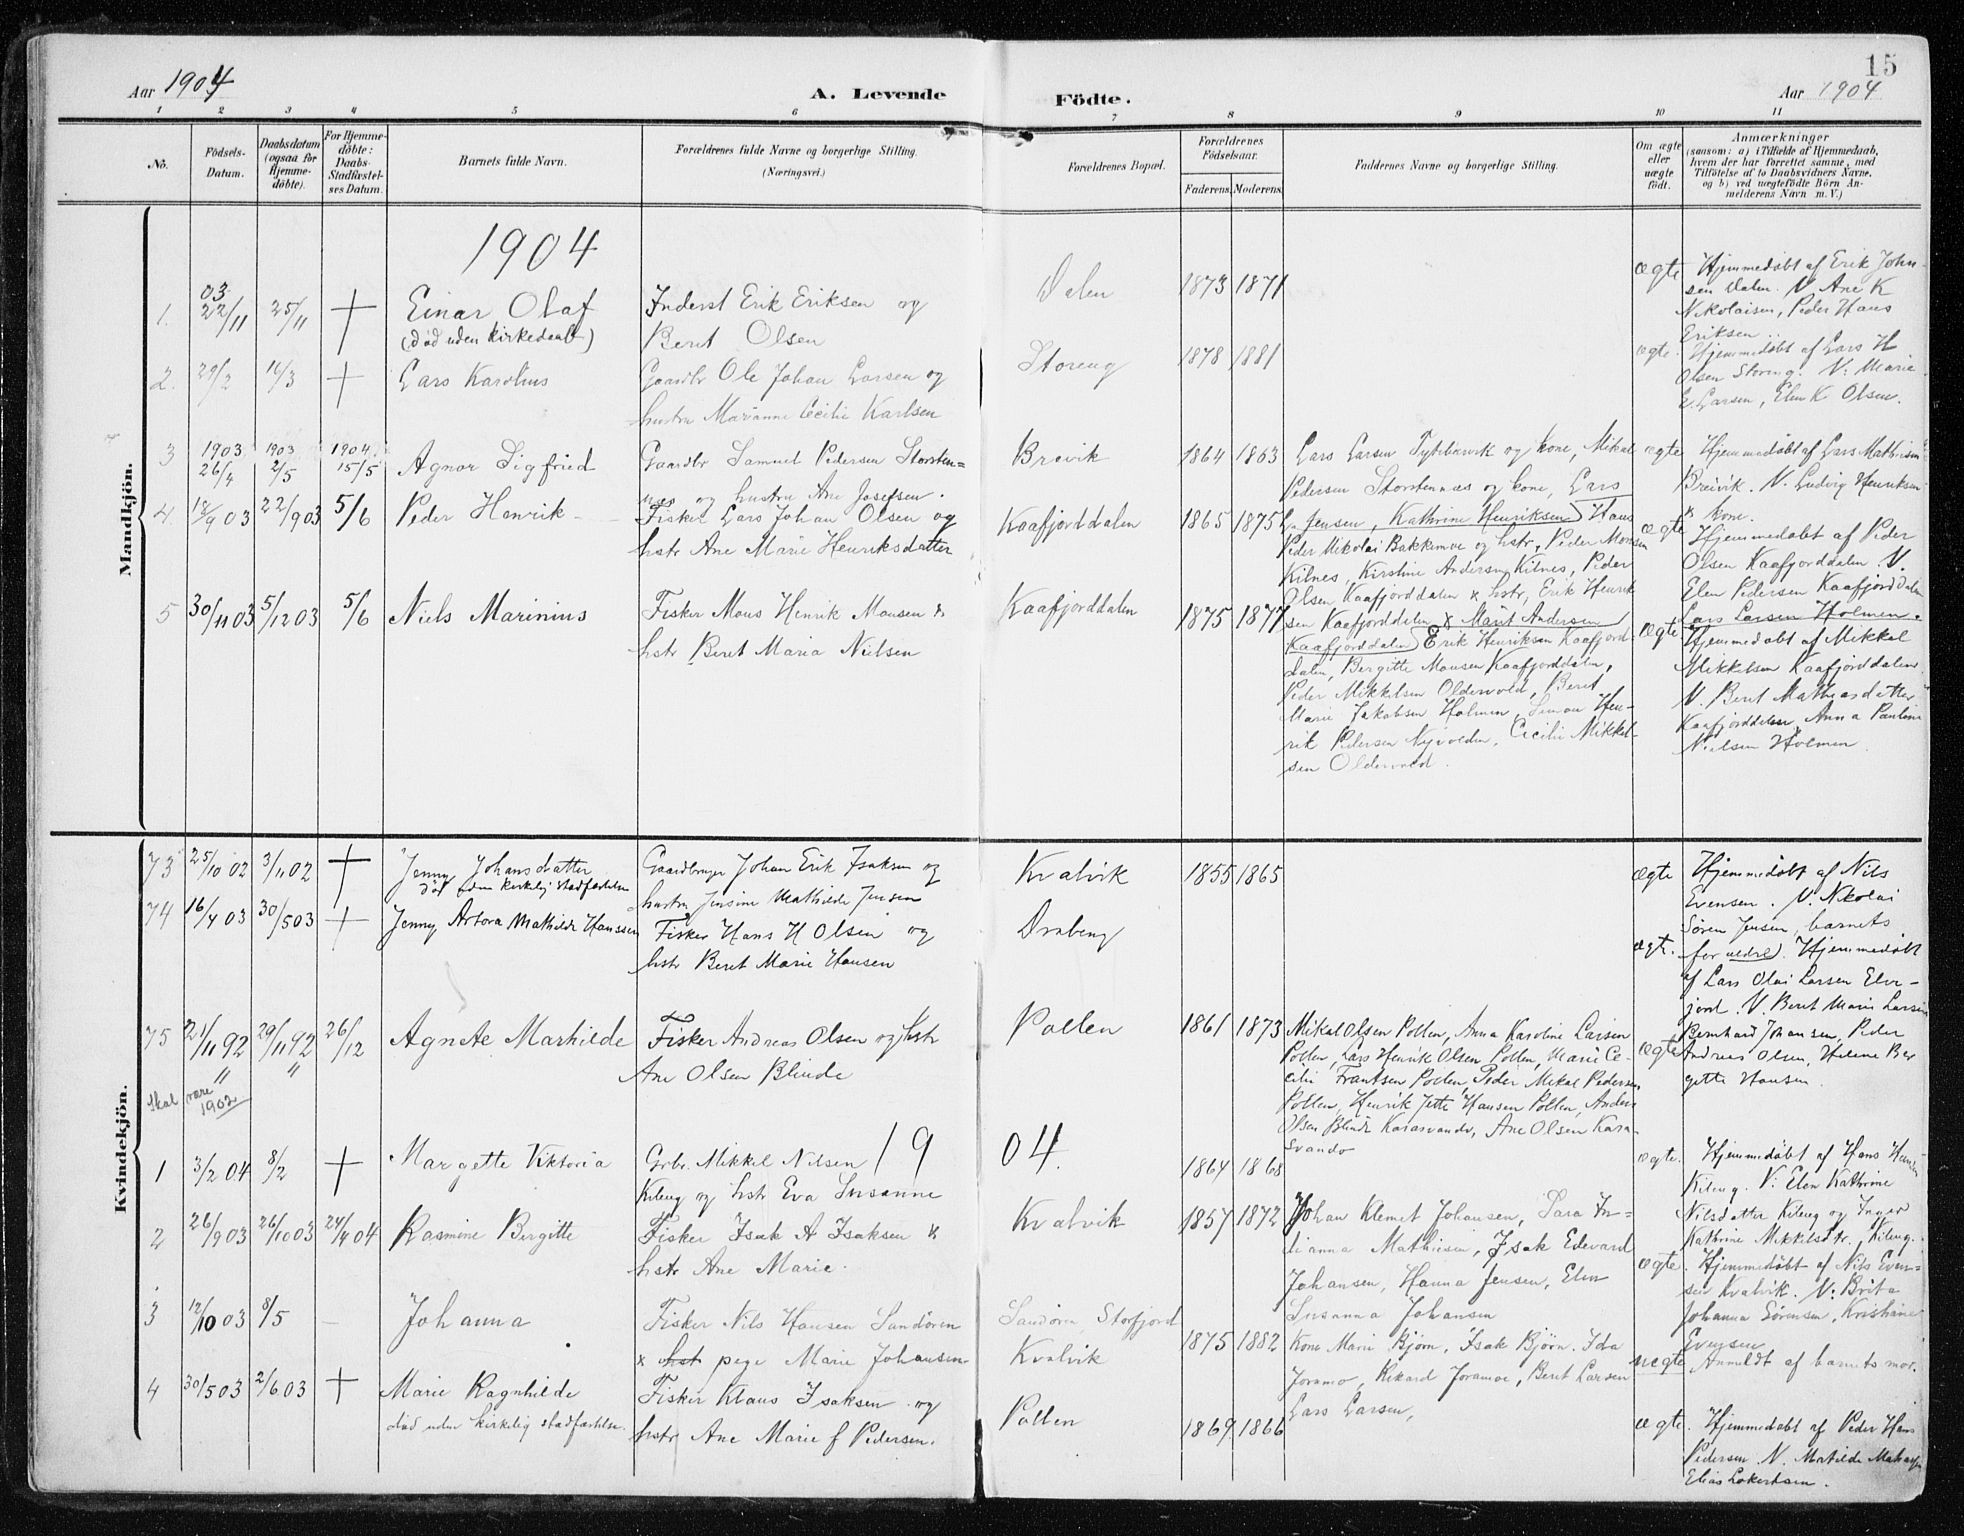 15
Aar 1904 A. Levende Födte. Aar 1904
1 2 3 4 5 6 7 8 9 10 11
No.
Födsels-
Datum.
Daabsdatum
(ogsaa for
Hjemme-
döbte).
For Hjemme-
döbte:
Daabs-
Stadfæstel-
ses Datum.
Barnets fulde Navn.
Forældrenes fulde Navne og borgerlige Stilling.
(Næringsvei.)
Forældrenes Bopæl.
Forældrenes
Födselsaar.
Faderens. Moderens.
Faddernes Navne og borgerlige Stilling.
Om ægte
eller
uægte
födt.
Anmærkninger
(saasom: a) i Tilfælde af Hjemmedaab,
hvem der har forrettet samme, med
Tilföielse af to Daabsvidners Navne,
og b) ved uægtefödte Börn An-
melderens Navn m. V.)
Mandkjön.
1904
1. 03 22/11 25/11 †
Einar Olaf
(död uden kirkedaab)
Inderst Erik Eriksen og
Beret Olsen
Dalen 1873 1871
ægte
Hjemmedöbt af Erik John-
sen Dalen. V Ane K
Nikolaisen, Peder Hans
Eriksen
2. 29/2 16/3 †
Lars Karolius
Gaardbr Ole Johan Larsen og
hustru Marianne Cecilie Karlsen
Storeng 1878 1881
ægte.
Hjemmedöbt af Lars H
Olsen Storeng. V: Marie
E. Larsen, Elen K Olsen.
3 1903 26/4 1903 2/5 1904 15/5
Agnar Sigfried
Gaardbr Samuel Pedersen Storsten-
næs og hustru Ane Josefsen.
Breivik 1864 1863
Lars Larsen og kone, Mikal
Pedersen Storstennæs og kone, Lars
L. Jensen, Kathrine Henriksen
ægte
Hjemmedöbt af Lars Mathisen
Breivik. V. Ludvig Henriksen
x kone.
4 18/9 03 22/9 03 5/6
Peder Henrik
Fisker Lars Johan Olsen og
hstr Ane Marie Henriksdatter
Kaafjorddalen 1865 1875
Hans
Peder Mikolai Bakkemoe og hstr, Peder Monsen
Kilnes, Kirstine Andersen Kilnes, Peder
Olsen Kaafjorddalen x hstr, Erik Henrik
sen Kaafjorddalen x Marit Andersen
Kaafjorddalen
ægte
Hjemmedøbt af Peder
Olsen Kaafjorddalen. V.
Elen Pedersen Kaafjorddalen
Lars Larsen Holmen.
5 30/11 03 5/12 03 5/6
Niels Marinius
Fisker Mons Henrik Monsen x
hstr Beret Maria Nielsen
Kaafjorddalen 1875 1877
Erik Henriksen Kaafjord-
dalen, Bergitte Monsen Kaafjorddalen,
Peder Mikkelsen Oldervold, Beret
Marie Jakobsen Holmen, Simon Hen-
rik Pedersen Nyvolden, Cecilie Mikkel-
sen Oldervold.
ægte
Hjemmedøbt af Mikkel
Mikkelsen Kaafjorddalen
V. Beret Mathiasdatter
Kaafjorddalen, Anna Pauline
Nielsen Holmen.
Kvindekjön.
73 25/10 02 3/11 02 †
Jenny Johansdatter
död uden kirkelig stadfæstelse
Gaardbruger Johan Erik Isaksen og
hustru Jensine Mathilde Jensen
Kvalvik 1855 1865
ægte
Hjemmedöbt af Nils
Evensen. V. Nikolai
Sören Jensen, barnets
forældre.
74 16/4 03 30/5 03 †
Jenny Mathilde Hanssen
Fisker Hans H Olsen og
hstr Beret Marie Hansen
ægt.
Hjemmedöbt
af Lars Olai Larsen Elve-
jord. V. Beret Marie Larsen
Bernhard Johansen, Peder
Andreas Olsen, Helene Ber
gette Hansen.
75 21/11 92 29/11 92 26/12
" "
Skal være 1902
Agnete Marhilde
Fisker Andreas Olsen og hstr
Ane Olsen Blinde
Pollen 1861 1873
Mikal Olsen Pollen, Anna Karoline Larsen
Pollen, Lars Henrik Olsen Pollen, Marie Ce-
cilie Frantsen Pollen, Peder Mikal Pedersen
Pollen, Henrik Jette Hansen Pollen, Anders
Olsen Blinde Karasvando, Ane Olsen Kara-
svando
ægte
1904.
1 3/2 04 8/2 †
Margette Viktoria
Grbr. Mikkel Nilsen
Kileng og hstr Eva Susanne
1864 1868
ægte.
Hjemmedöbt af Hans Hansen
Kileng. V: Elen Kathrine
Nilsdatter Kileng og Inger
Kathrine Mikkelsdtr., Kileng.
2 26/9 03 26/10 03 24/4 04
Rasmine Bergitte
Fisker Isak A Isaksen x
hstr Ane Marie.
Kvalvik 1857 1872
Johan Klemet Johansen, Sara In-
dianna Mathiesen, Isak Edevard
Johansen, Hanna Jensen, Elen
Susanna Johansen
ægte.
Hjemmedöbt af Nils Even-
sen Kvalvik. V: Brita
Johanna Sørensen, Kristiane
Evensen
3 12/10 03 8/5 –
Johanna
Fisker Nils Hansen Sandören
x hst pege Marie Johansen
Sandören, Storfjord
Kvalvik
1875 1882
Kone Marie Bjørn, Isak Bjørn. Ida
Joramo, Rikard Joramoe, Beret Larsen
Lars Larsen,
uegte
Anmeldt af barnets mor.
4 30/5 03 2/6 03 †
Marie Ragnhilde
död uden kirkelig stadfæstelse.
Fisker Klaus Isaksen og
hstr Ane Marie f Pedersen.
Pollen 1869 1866
ægte.
Hjemmedöbt af Peder Hans
Pedersen. V. Matilde
Elias Lokertsen.